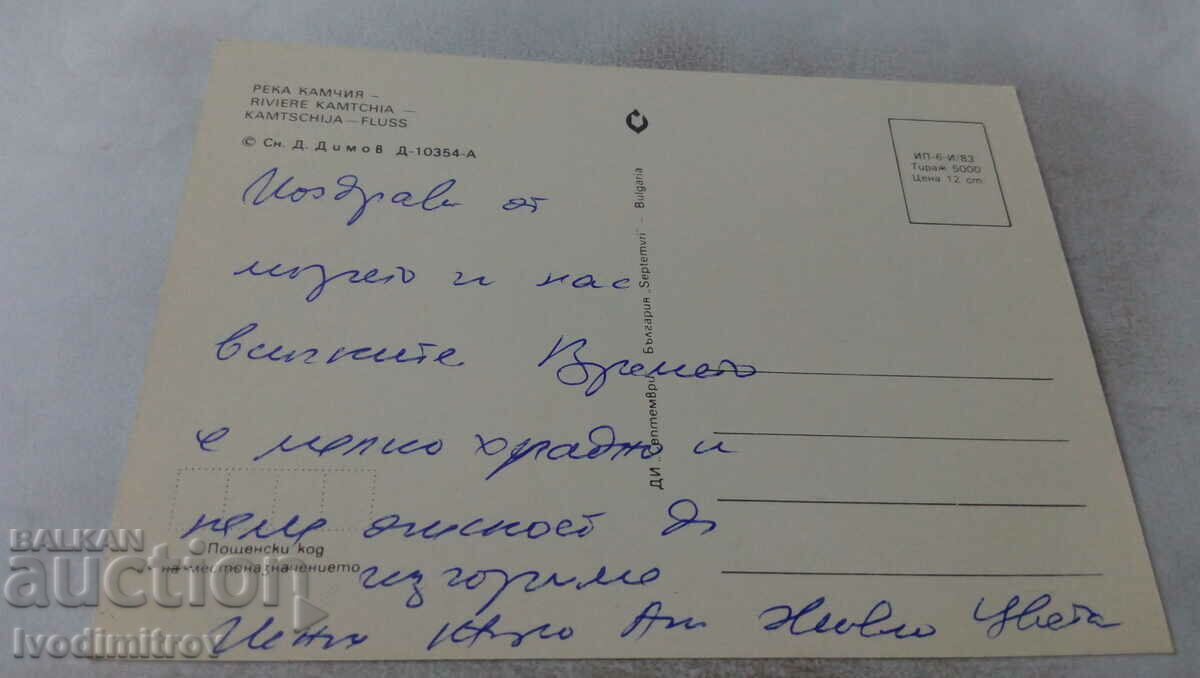 РЕКА КАМЧИЯ –
RIVIERE KAMTCHIA —
KAMTSCHIJA — FLUSS
© Сн. Д. Димов Д-10354-А
ИП-6-И/83
Тираж 5000
Цена 12 ст.
ДИ „Септември" България „Septemvri" - Bulgaria
Поздрави от
морето и нас
всичките Времето
е малко хладно и
няма опасност да
изгориме
Цвета
Пощенски код
на местоназначението
BALKAN
auction
Ivodimitrov